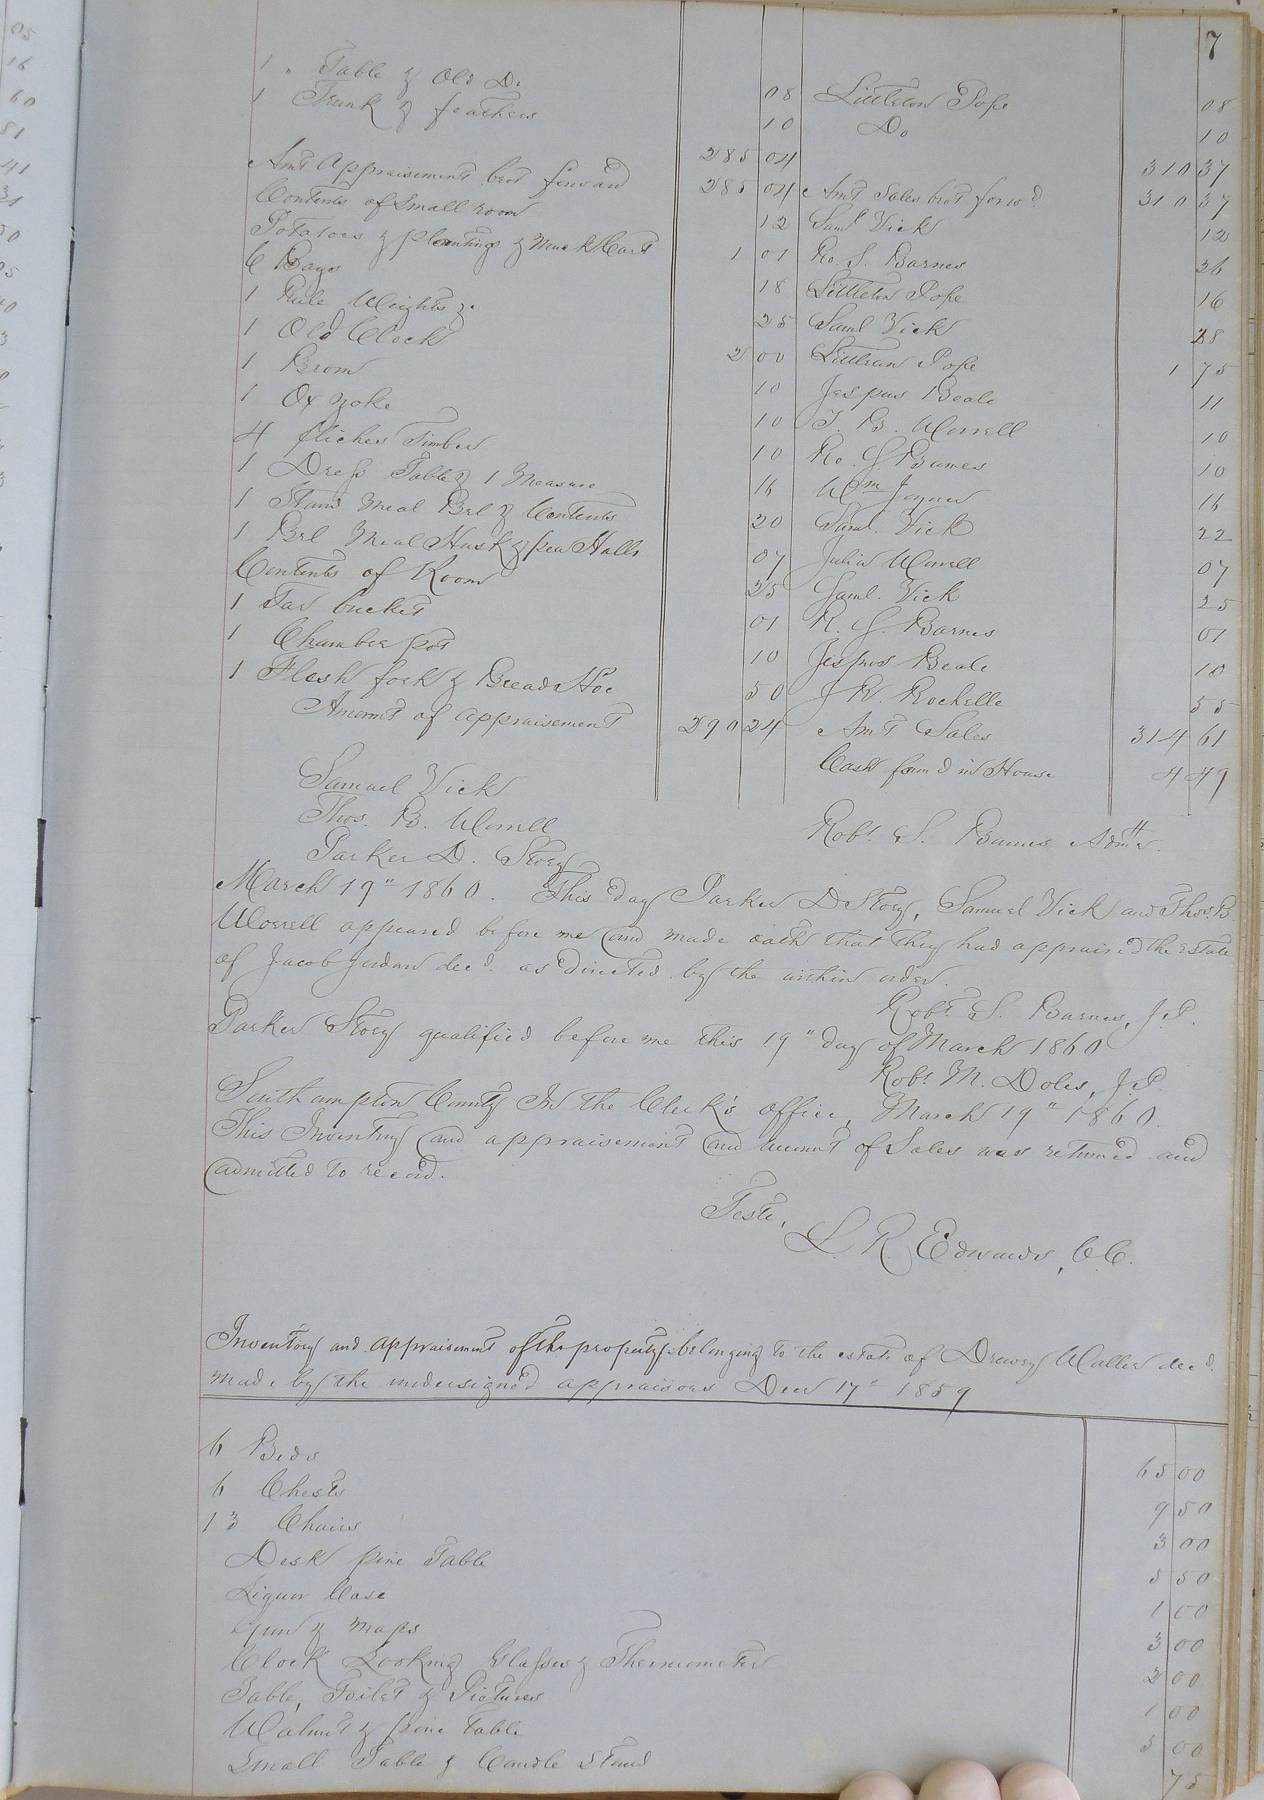 7
1 " Table & Old Do 08 Littleton Pope 08
1 Trunk & feathers 10 Do 10
285 04 310 37
Amt Appraisement brot forward 285 04 Amt Sales brot forwd 310 37
Contents of Small room 12 Saml Vick 12
Potatoes & plantings & Cart 1 01 Ro. S. Barnes 26
6 Bags 18 Littleton Pope 16
1 Rule Weights &c 25 Saml Vick 28
1 Old Clock 2 00 Littleton Pope 1 75
1 Brom 10 Jespus Beale 11
1 Ox yoke 10 T. B. Worrell 10
4 Timber 10 Ro. S Barnes 10
1 Dress Table & 1 Measure 16 Wm Joyner 16
1 Stand Meal Brl & Contents 20 Saml. Vick 22
1 Brl Meal Husk & pea Halls 07 Julia Worrell 07
Contents of Room 25 Saml. Vick 25
1 Tar bucket 01 R. S. Barnes 01
1 Chamber pot 10 Jespus Beale 10
1 Flesh fork & Bread Hoe 50 J R. Rochelle 55
Amount of appraisement 290 24 Amt Sales 314 61
Cash found in House 4 49
Samuel Vick
Thos. B. Worrell
Parker D. Story
Robt. S. Barnes Admr.
March 19" 1860. This day Parker D Story, Samuel Vick and Thos. B.
Worrell appeared before me and made oath that they had appraised the estate
of Jacob Jordan decd. as directed by the within order.
Robt. S. Barnes, J.P.
Parker Story qualified before me this 19" day of March 1860
Robt M. Doles, J.P.
Southampton County In the Clerk's office, March 19" 1860.
This Inventory and appraisement and account of Sales was returned and
admitted to record.
Teste,
L R Edwards, C.C.
Inventory and appraisement of the property belonging to the estate of Drewry Waller decd.
made by the undersigned appraisors Decr 17" 1859
6 Beds 65 00
6 Chests 9 50
13 Chairs 3 00
Desk pine Table 5 50
Liquor Case 1 00
Gun & Maps 3 00
Clock Looking Glasses & Thermometer 2 00
Table, Toilet & Pictures 1 00
Walnut & pine table 5 00
Small Table & Candle Stand 75